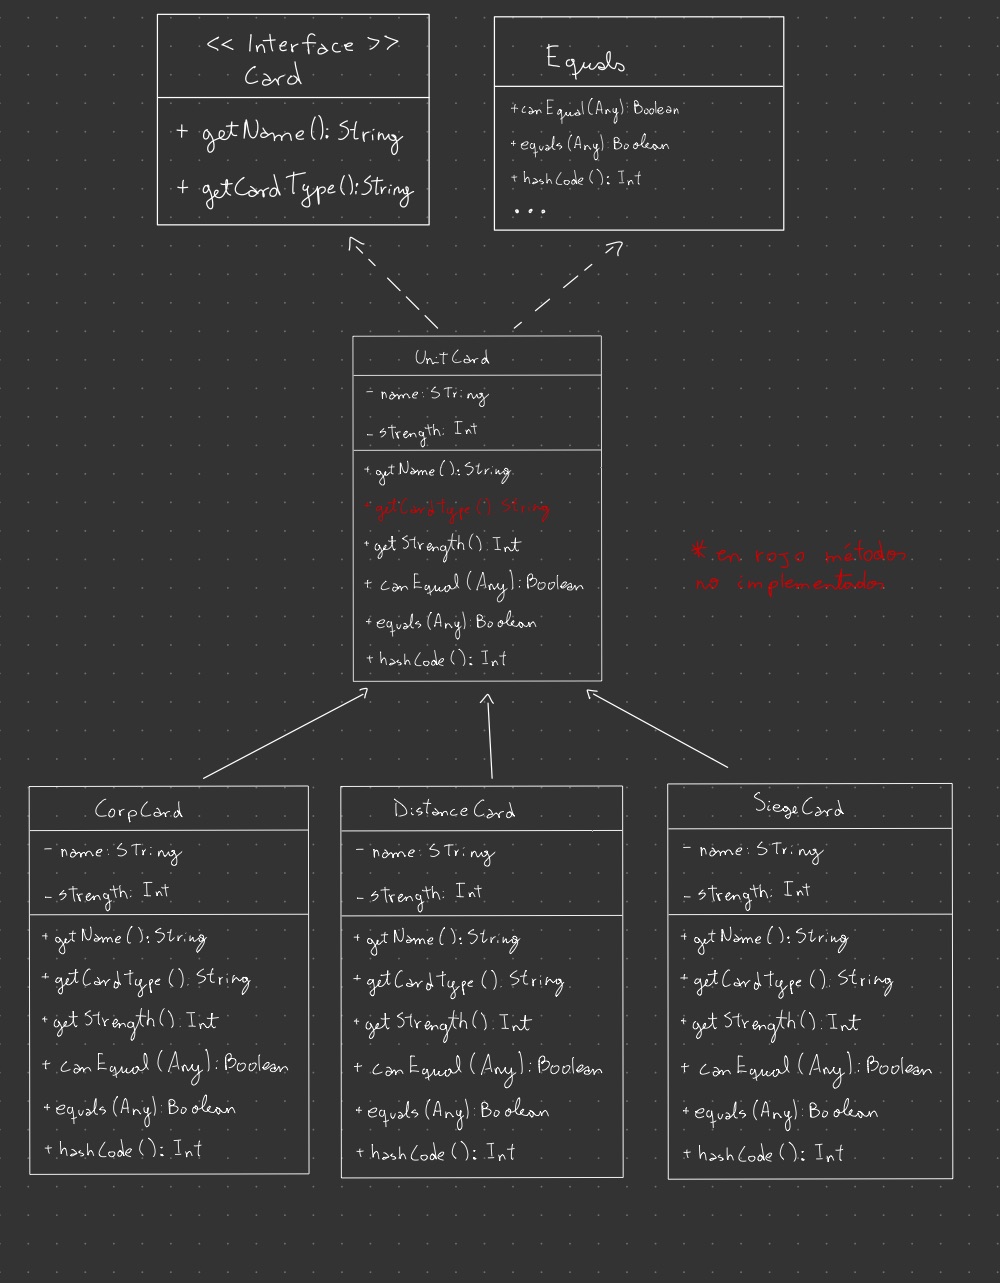 << Interface >>
Card
+ getName(): String
+ getCardType(): String
Equals
+ canEqual(Any): Boolean
+ equals(Any): Boolean
+ hashCode(): Int
...
UnitCard
- name: STring
- strength: Int
+ getName(): String
+ getCardtype(): String
+ getStrength(): Int
+ canEqual(Any): Boolean
+ equals(Any): Boolean
+ hashCode(): Int
* en rojo métodos
no implementados
CorpCard
- name: STring
- strength: Int
+ getName(): String
+ getCardtype(): String
+ getStrength(): Int
+ canEqual(Any): Boolean
+ equals(Any): Boolean
+ hashCode(): Int
DistanceCard
- name: STring
- strength: Int
+ getName(): String
+ getCardtype(): String
+ getStrength(): Int
+ canEqual(Any): Boolean
+ equals(Any): Boolean
+ hashCode(): Int
SiegeCard
- name: STring
- strength: Int
+ getName(): String
+ getCardtype(): String
+ getStrength(): Int
+ canEqual(Any): Boolean
+ equals(Any): Boolean
+ hashCode(): Int